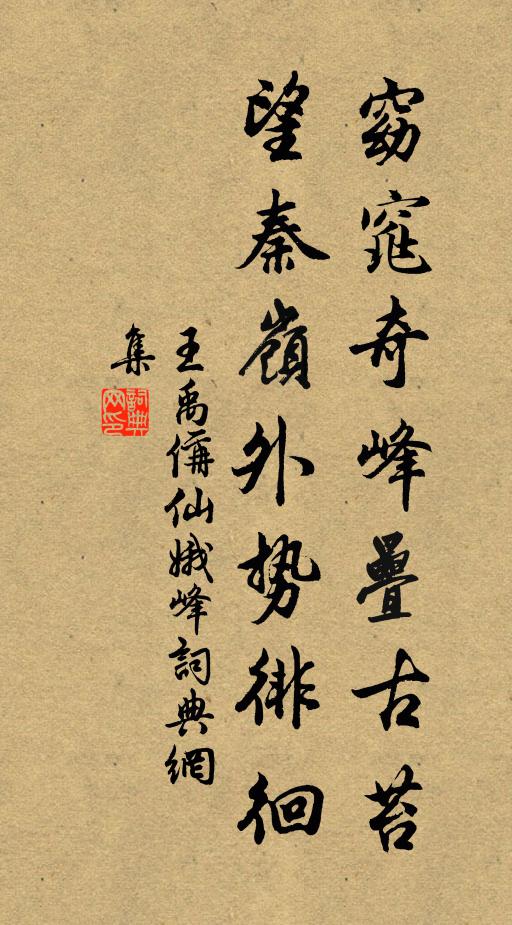 窈窕奇峰疊古苔
望秦嶺外势徘徊
王禹偁仙娥峰詞典網
集
詞典
网印